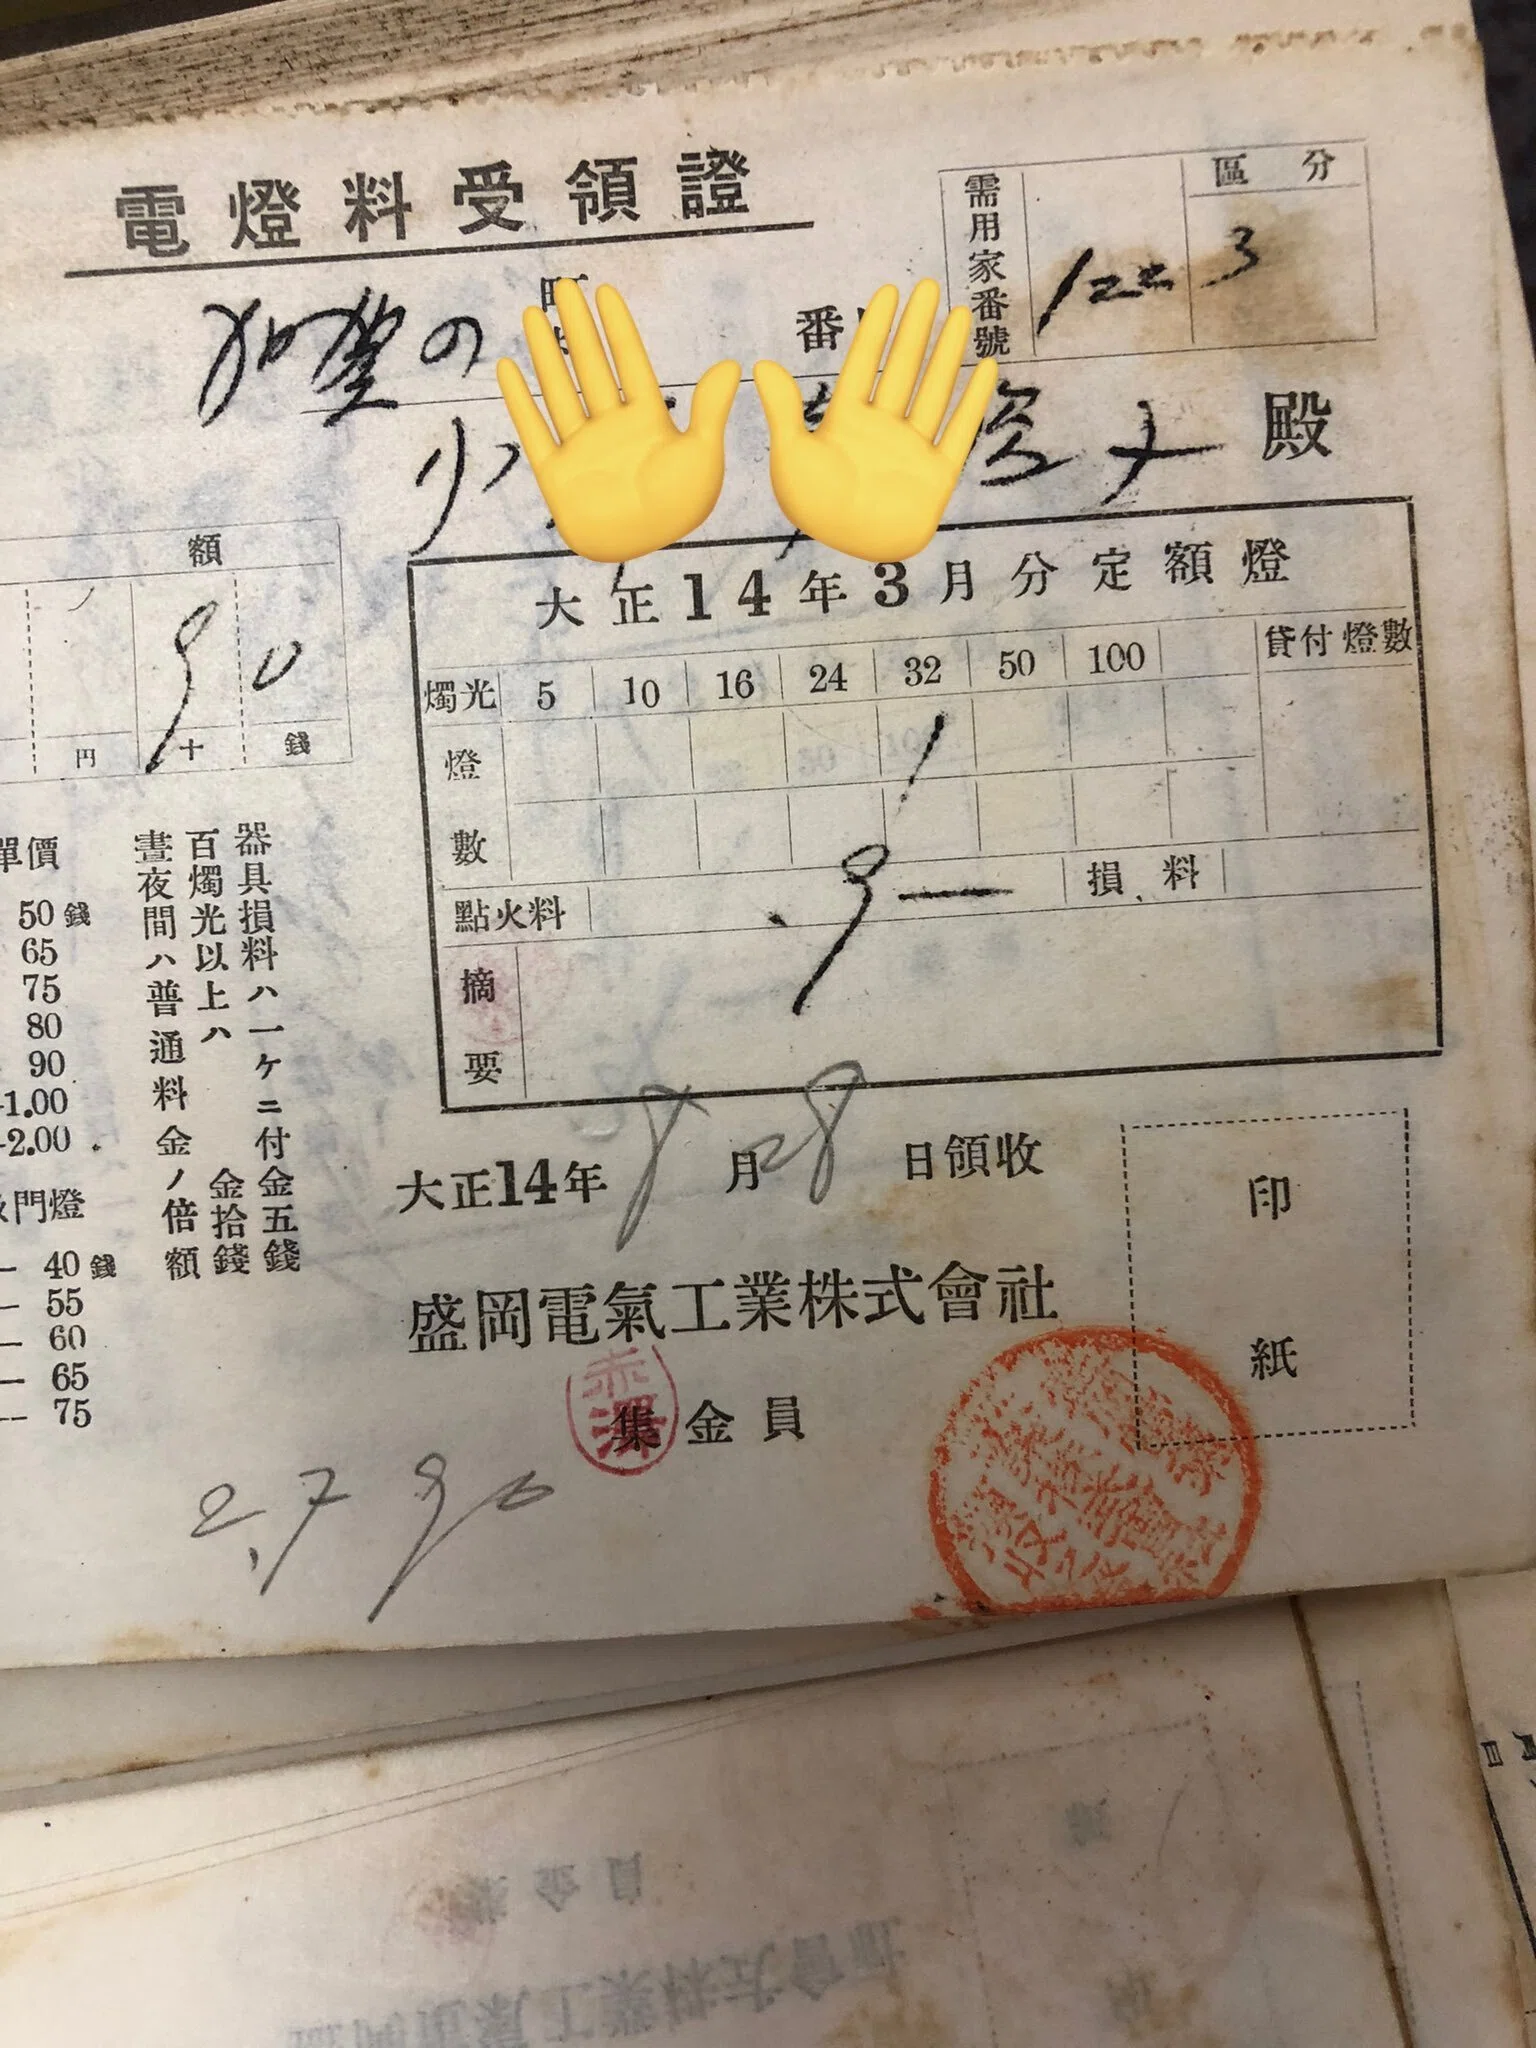 電燈料受領證
區分
需用家番號
1223
加賀の
番
殿
額
90
円 十 錢
大正14年3月分定額燈
燭光 5 10 16 24 32 50 100 貸付燈數
燈數 1
點火料 .9— 損料
摘要
大正14年8月28日領收
盛岡電氣工業株式會社
集金員
赤澤
印紙
器具損料ハ一ケニ付金五錢
百燭光以上ハ 金拾錢
晝夜間ハ普通料金ノ倍額
單價
50錢
65
75
80
90
1.00
2.00
門燈
40錢
55
60
65
75
2,790